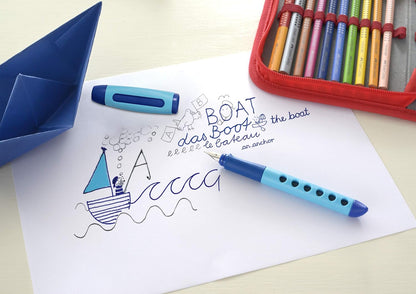 BOAT
das Boot the boat
eeeee le bateau
an anchor
A ccccg